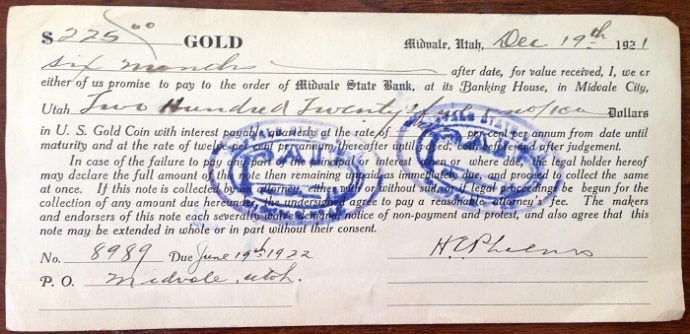 $ 225 00 GOLD Midvale, Utah, Dec 19th 1921
six months after date, for value received, I, we or
either of us promise to pay to the order of Midvale State Bank, at its Banking House, in Midvale City,
Utah Two Hundred Twenty five & no/100 Dollars
in U. S. Gold Coin with interest payable quarterly at the rate of per cent per annum from date until
maturity and at the rate of twelve per cent per annum thereafter until paid, both before and after judgement.
In case of the failure to pay any part of the principal or interest when or where due, the legal holder hereof
may declare the full amount of note then remaining unpaid as immediately due, and proceed to collect the same
at once. If this note is collected by an attorney, either with or without suit, or if legal proceedings be begun for the
collection of any amount due hereunder, the undersigned agree to pay a reasonable attorney's fee. The makers
and endorsers of this note each severally waive demand, notice of non-payment and protest, and also agree that this
note may be extended in whole or in part without their consent.
No. 8989 Due June 19th 1922
P. O. Midvale, Utah.
PAID
PAID